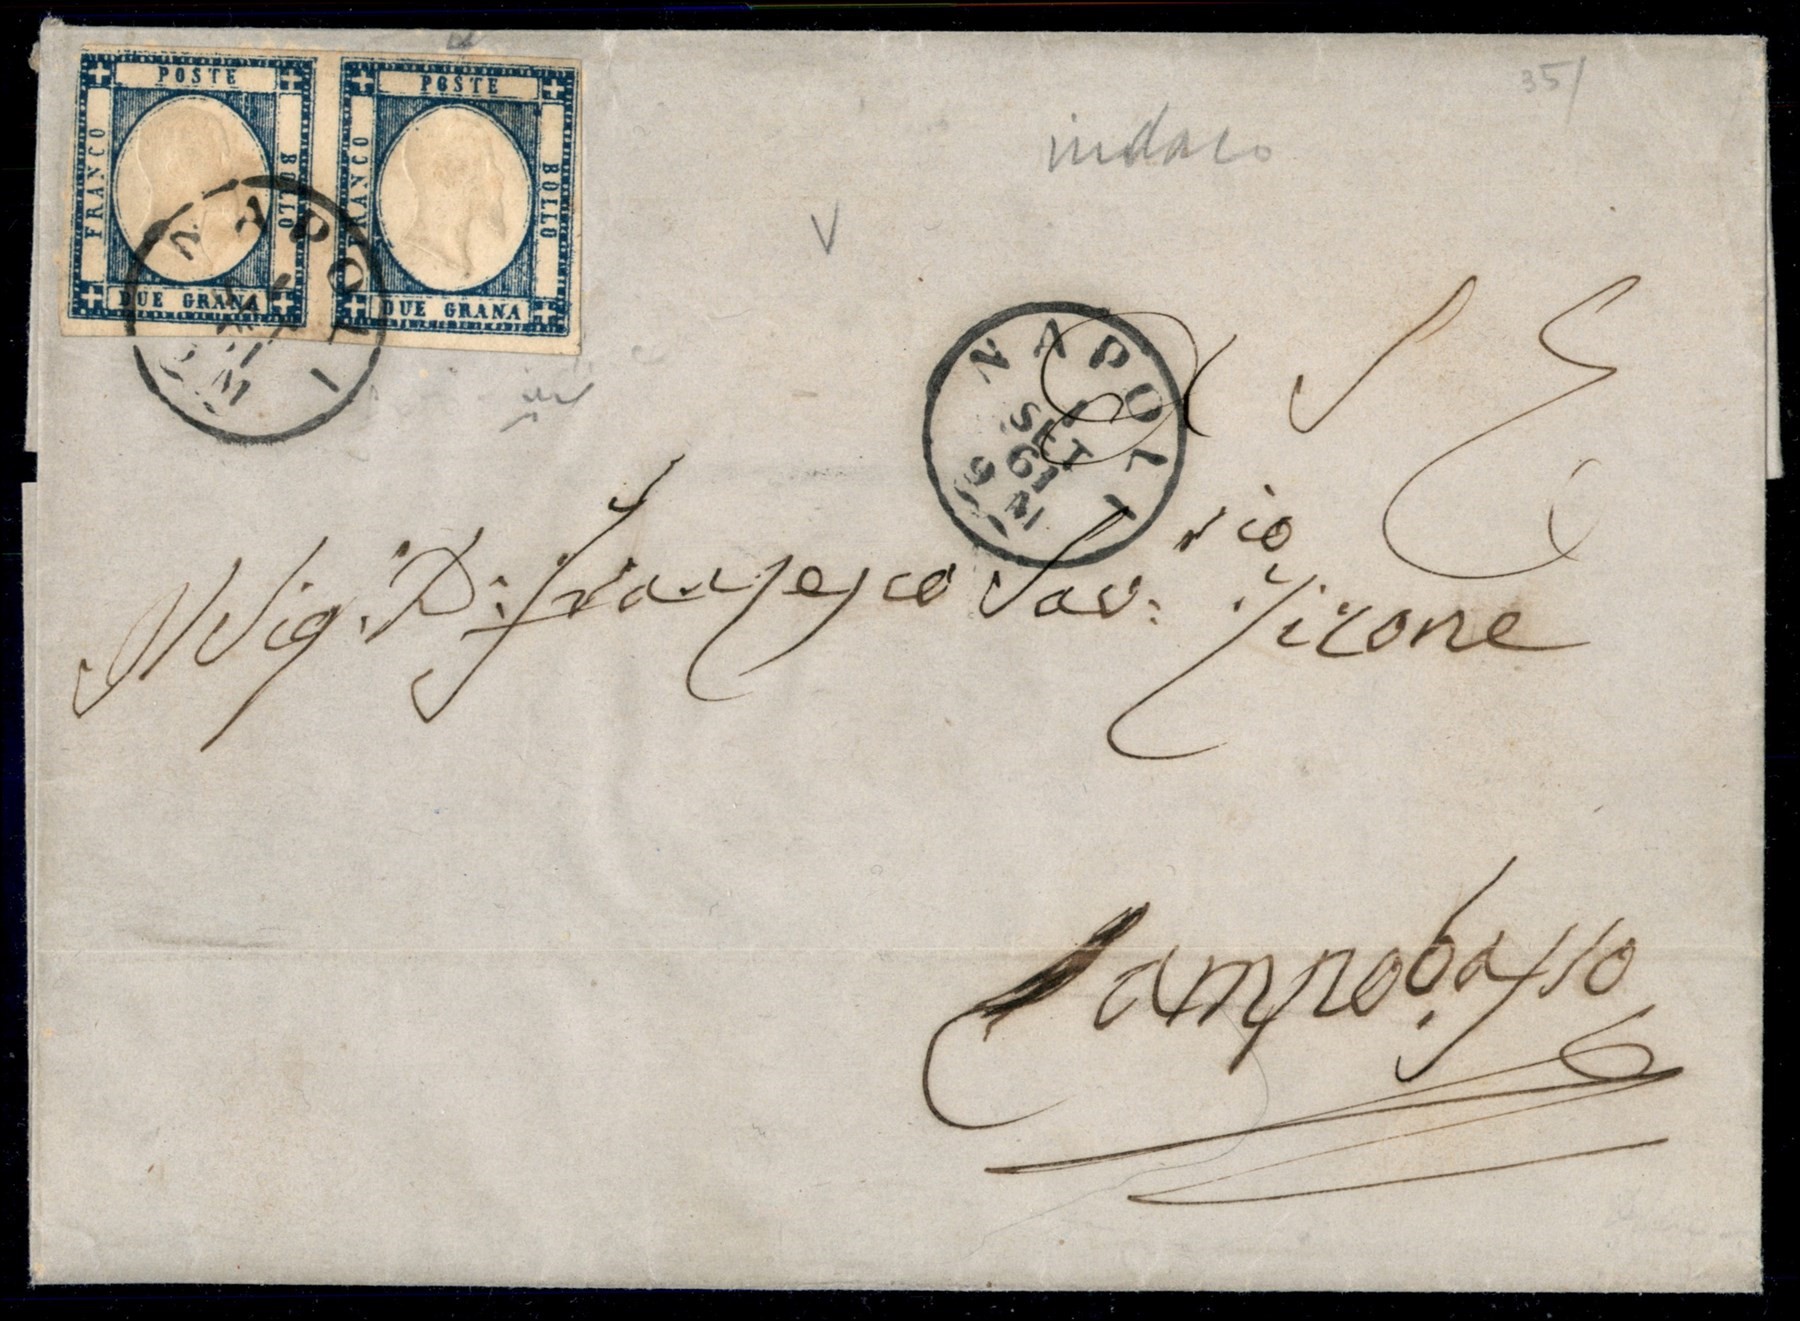 POSTE POSTE
FRANCO BOLLO FRANCO BOLLO
DUE GRANA DUE GRANA
NAPOLI
35/
indaco
V
NAPOLI
1
SET
61
9 M
Al Sig. D. Francesco Sav:rio Girone
Campobasso